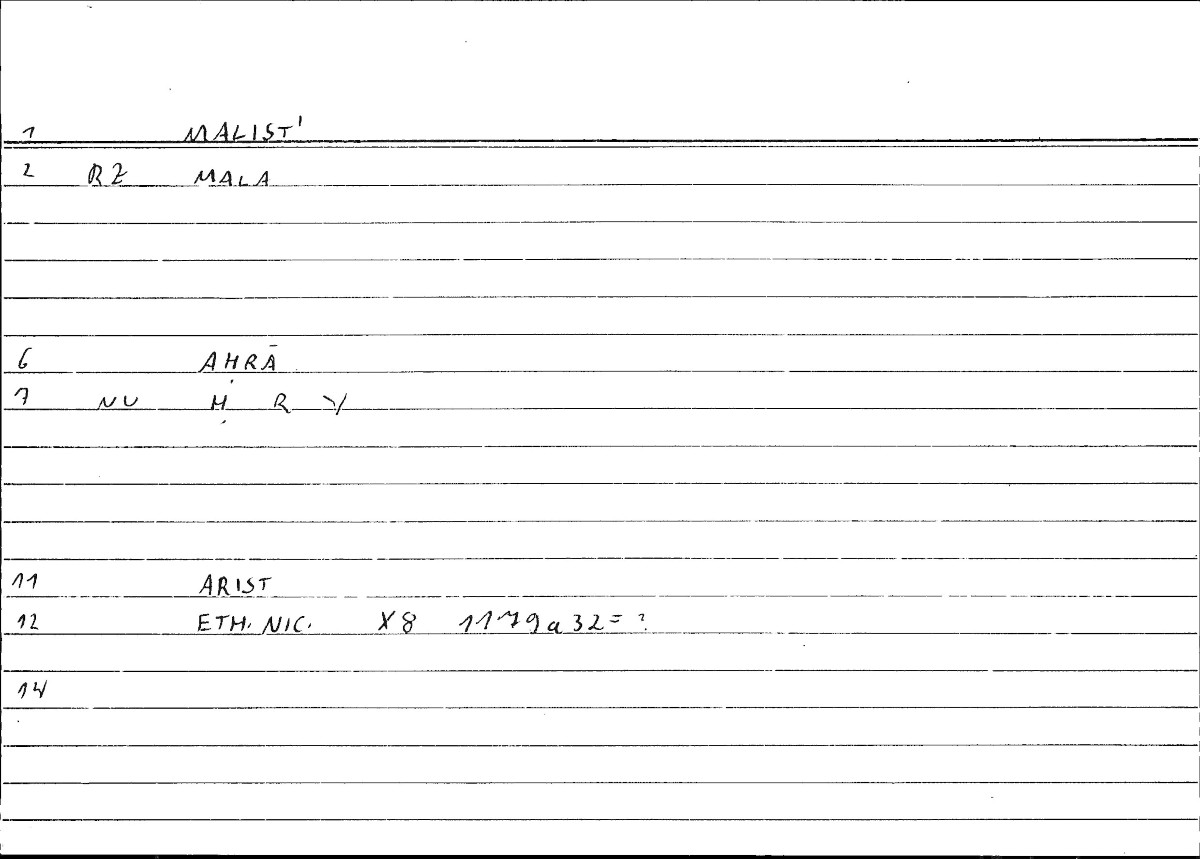 1 MALIST'
2 RZ MALA
6 AḤRĀ
7 NU Ḥ R Y
11 ARIST
12 ETH. NIC. X8 1179a32=?
14